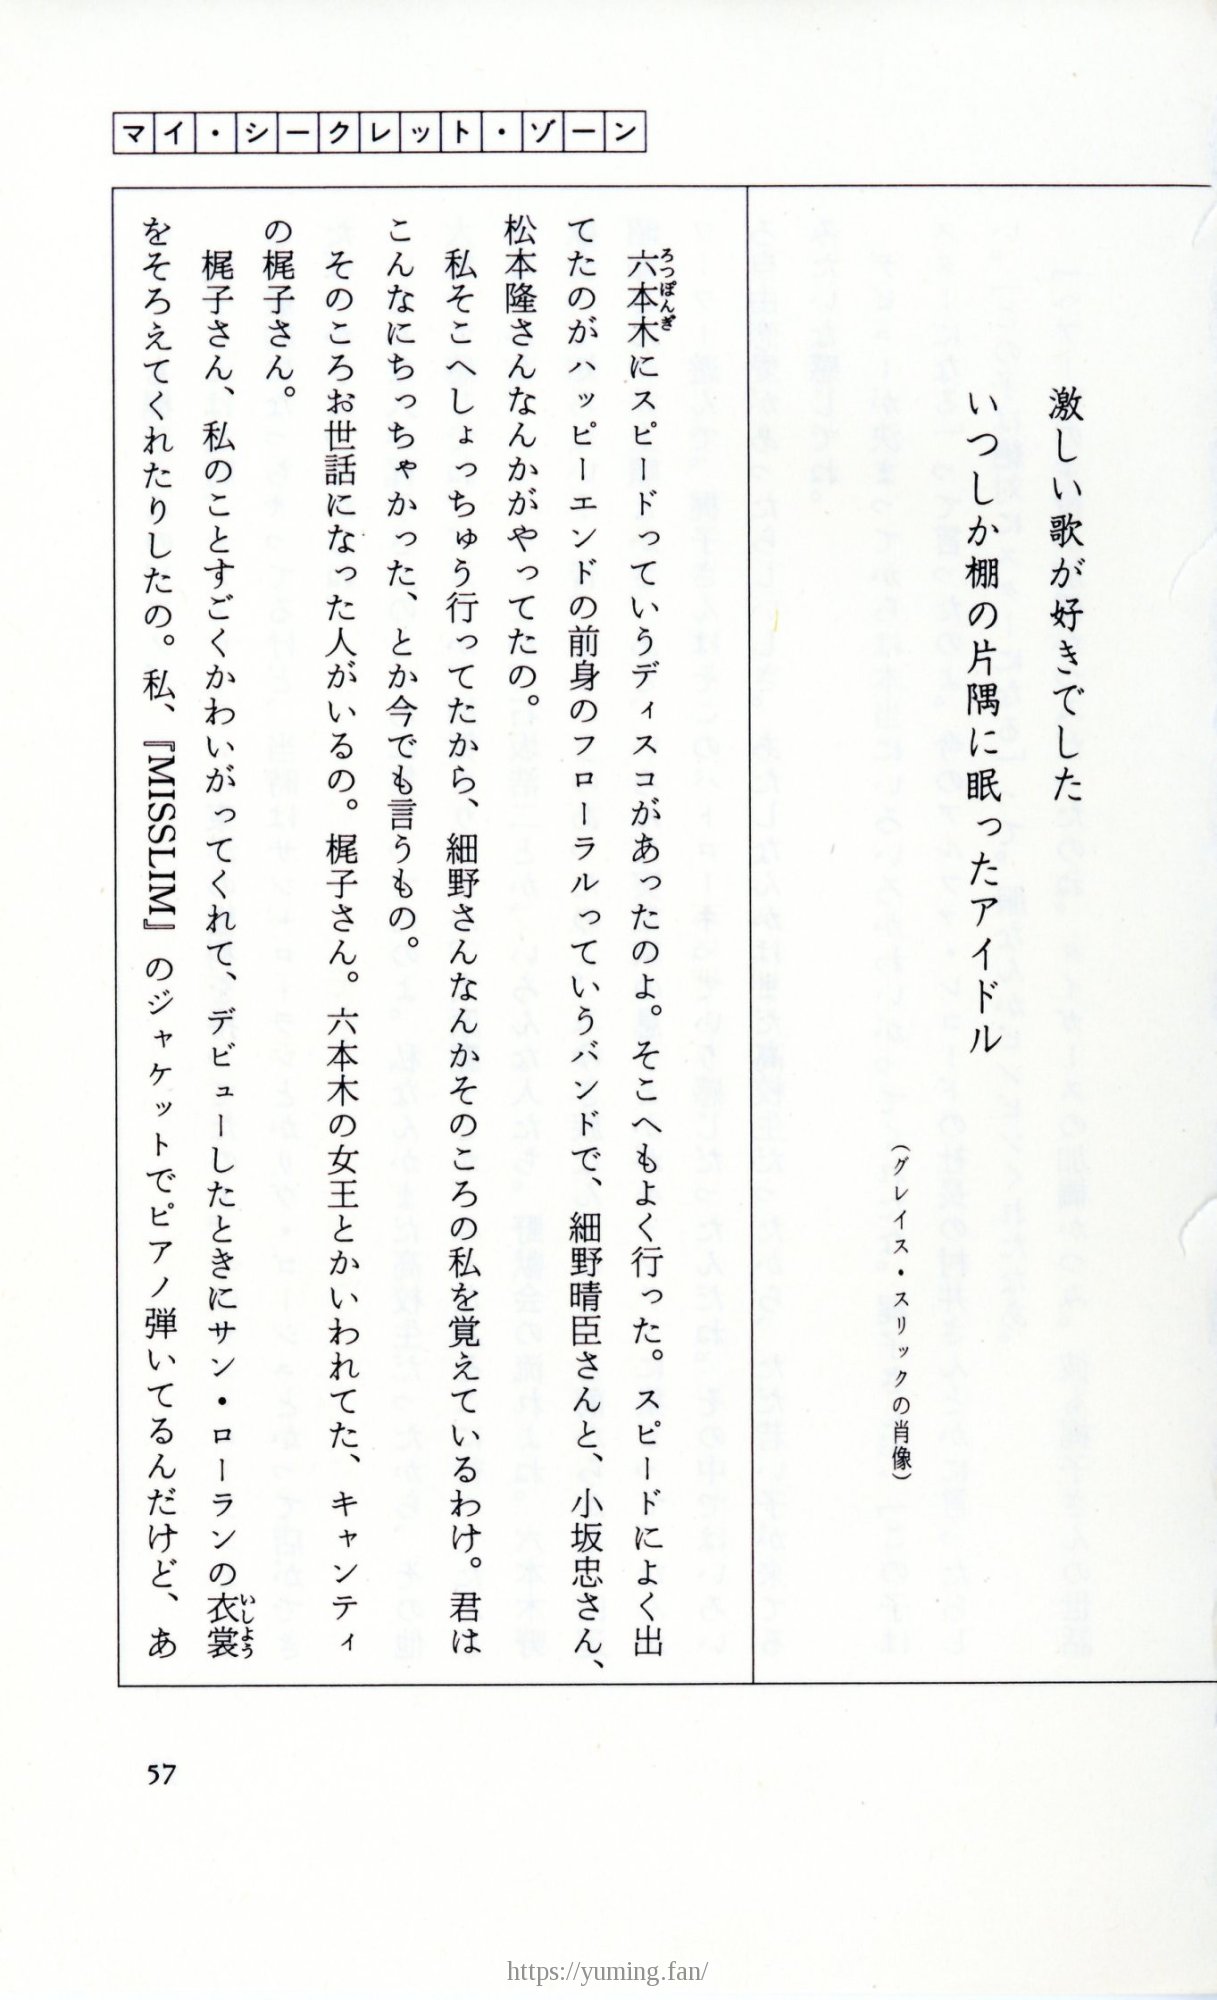 マイ・シークレット・ゾーン
激しい歌が好きでした
いつしか棚の片隅に眠ったアイドル
(グレイス・スリックの肖像)
六本木にスピードっていうディスコがあったのよ。そこへもよく行った。スピードによく出
ろつぽんぎ
てたのがハッピーエンドの前身のフローラルっていうバンドで、細野晴臣さんと、小坂忠さん、
松本隆さんなんかがやってたの。
私そこへしょっちゅう行ってたから、細野さんなんかそのころの私を覚えているわけ。君は
こんなにちっちゃかった、とか今でも言うもの。
そのころお世話になった人がいるの。梶子さん。六本木の女王とかいわれてた、キャンティ
の梶子さん。
梶子さん、私のことすごくかわいがってくれて、デビューしたときにサン・ローランの衣裳
いしよう
をそろえてくれたりしたの。私、『MISSLIM』のジャケットでピアノ弾いてるんだけど、あ
57
https://yuming.fan/